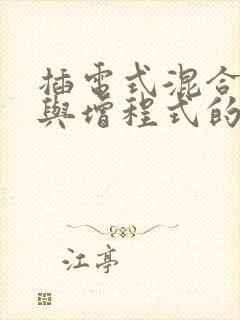 插電式混合
與增程式的
江亭